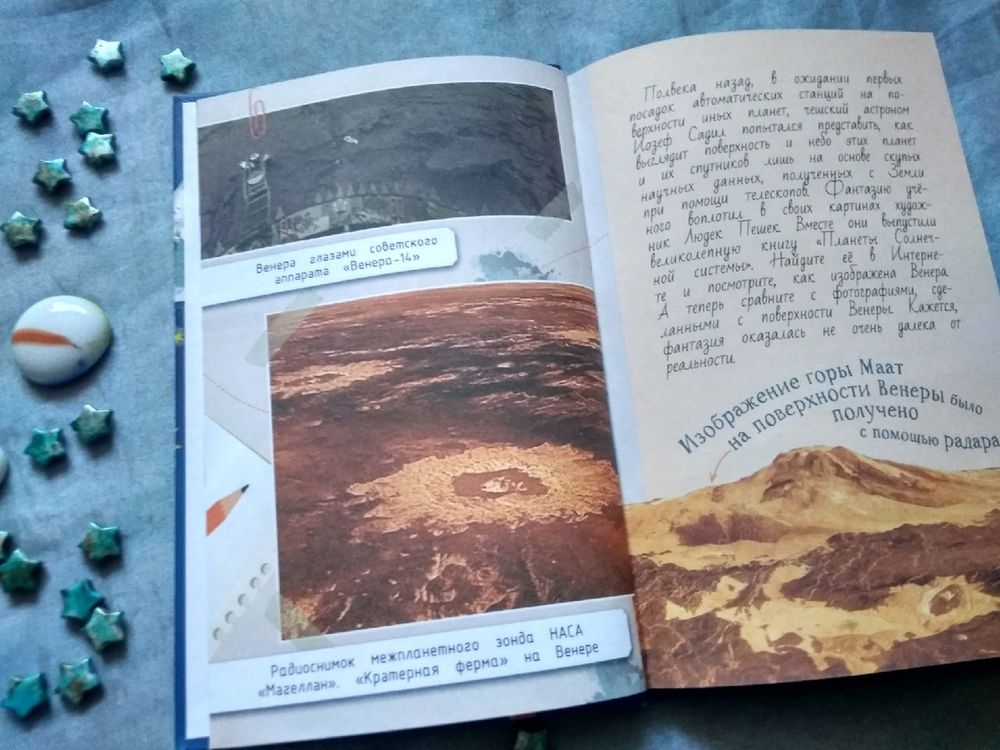 Венера глазами советского
аппарата «Венера-14»
Радиоснимок межпланетного зонда НАСА
«Магеллан». «Кратерная ферма» на Венере
Полвека назад, в ожидании первых
посадок автоматических станций на по-
верхности иных планет, чешский астроном
Иозеф Садил попытался представить, как
выглядит поверхность и небо этих планет
и их спутников лишь на основе скупых
научных данных, полученных с Земли
при помощи телескопов. Фантазию учё-
ного воплотил в своих картинах худож-
ник Людек Пешек. Вместе они выпустили
великолепную книгу «Планеты Солнеч-
ной системы». Найдите её в Интерне-
те и посмотрите, как изображена Венера.
А теперь сравните с фотографиями, сде-
ланными с поверхности Венеры. Кажется,
фантазия оказалась не очень далека от
реальности.
Изображение горы Маат
на поверхности Венеры было
получено
с помощью радара